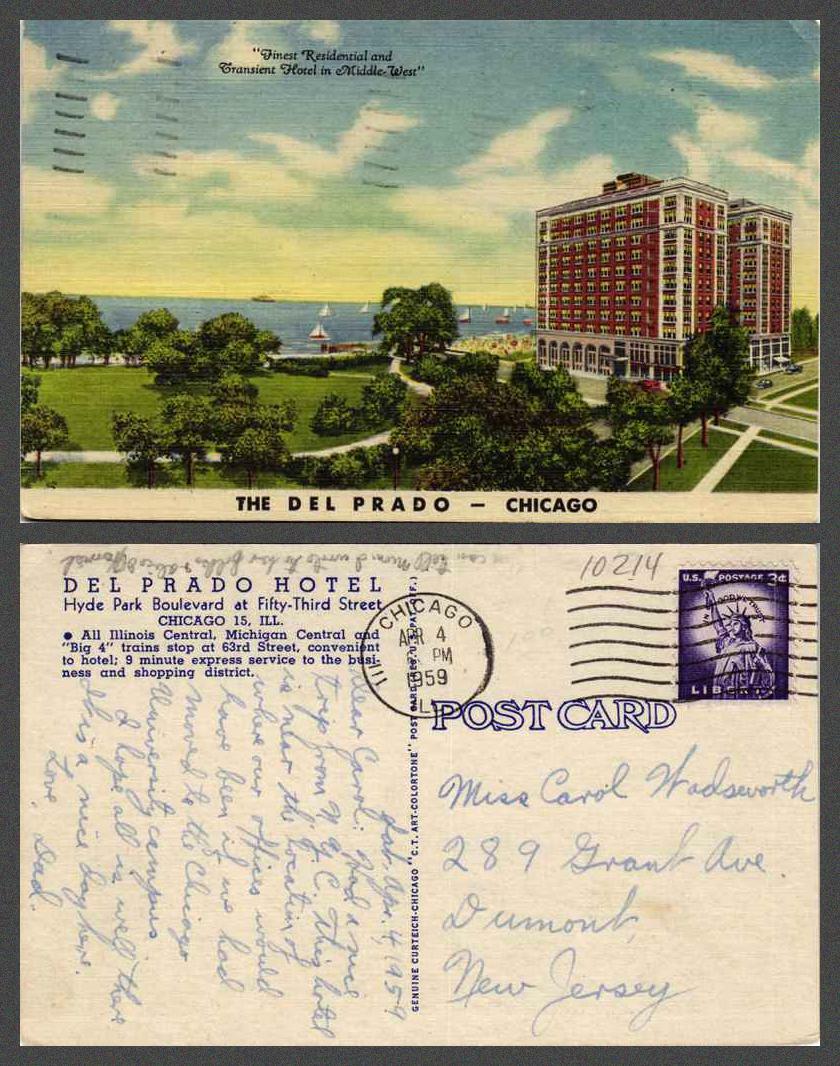 "Finest Residential and
Transient Hotel in Middle-West"
THE DEL PRADO — CHICAGO
can tell Mom I wrote to her folks
DEL PRADO HOTEL
Hyde Park Boulevard at Fifty-Third Street
CHICAGO 15, ILL.
● All Illinois Central, Michigan Central and
"Big 4" trains stop at 63rd Street, convenient
to hotel; 9 minute express service to the busi-
ness and shopping district.
Sat. Apr. 4 1959
Dear Carol: Had a nice
trip from N.Y.C. This hotel
is near the location of
where our offices would
have been if we had
moved to the Chicago
University campus
I hope all is well there
It is a nice day here.
Love,
Dad.
GENUINE CURTEICH-CHICAGO "C.T. ART-COLORTONE" POST CARD (REG. U.S. PAT. OFF.)
CHICAGO
APR 4
PM
1959
ILL.
10214
U.S. POSTAGE 3¢
IN GOD WE TRUST
LIBERTY
POST CARD
Miss Carol Wadsworth
289 Grant Ave.
Dumont,
New Jersey